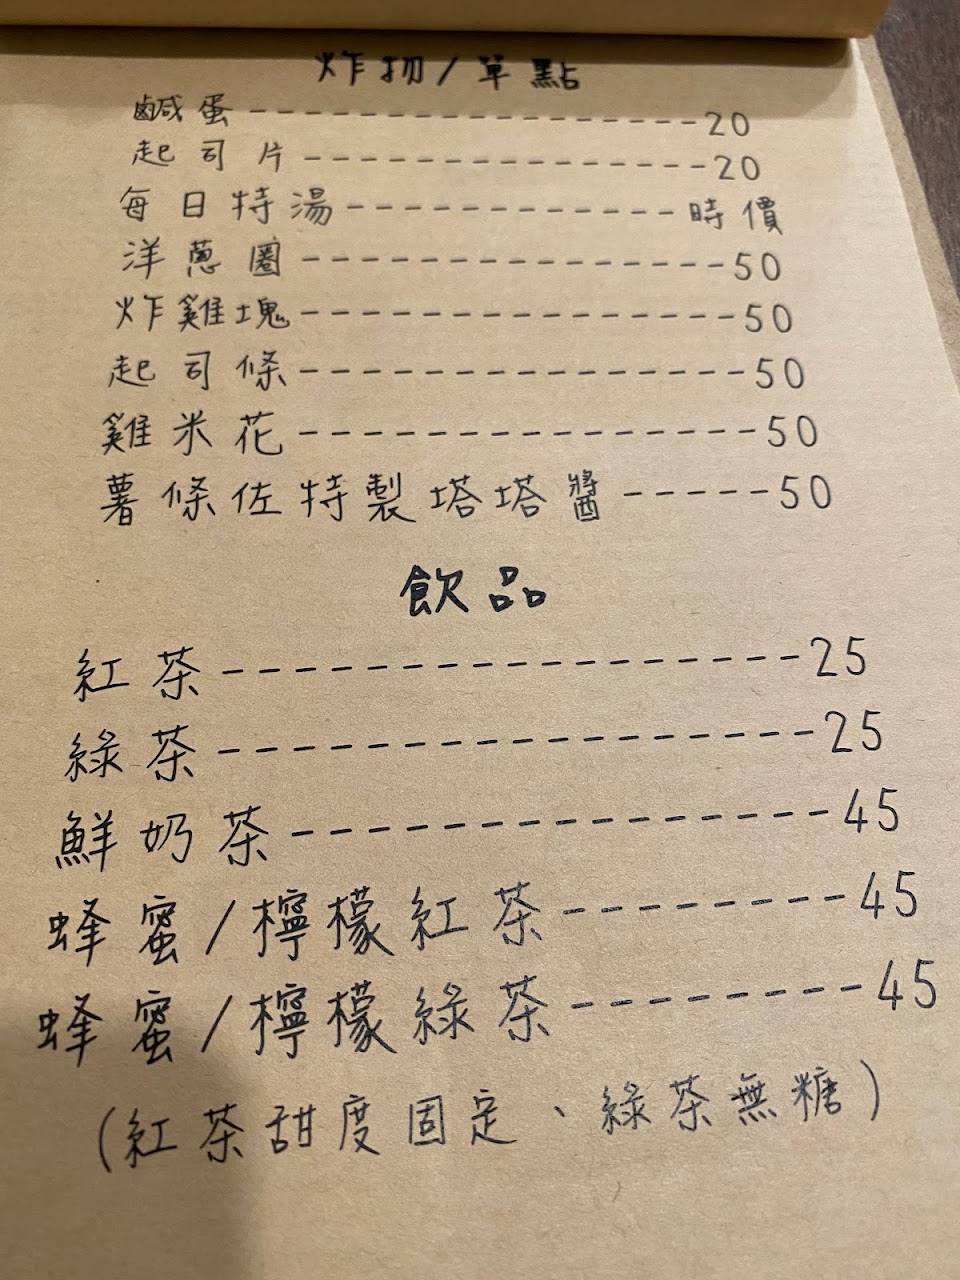 炸物/單點
鹹蛋-----------------20
起司片--------------20
每日特湯------------時價
洋蔥圈--------------50
炸雞塊--------------50
起司條---------------50
雞米花---------------50
薯條佐特製塔塔醬-----50
飲品
紅茶------------------25
綠茶------------------25
鮮奶茶----------------45
蜂蜜/檸檬紅茶---------45
蜂蜜/檸檬綠茶---------45
(紅茶甜度固定、綠茶無糖)